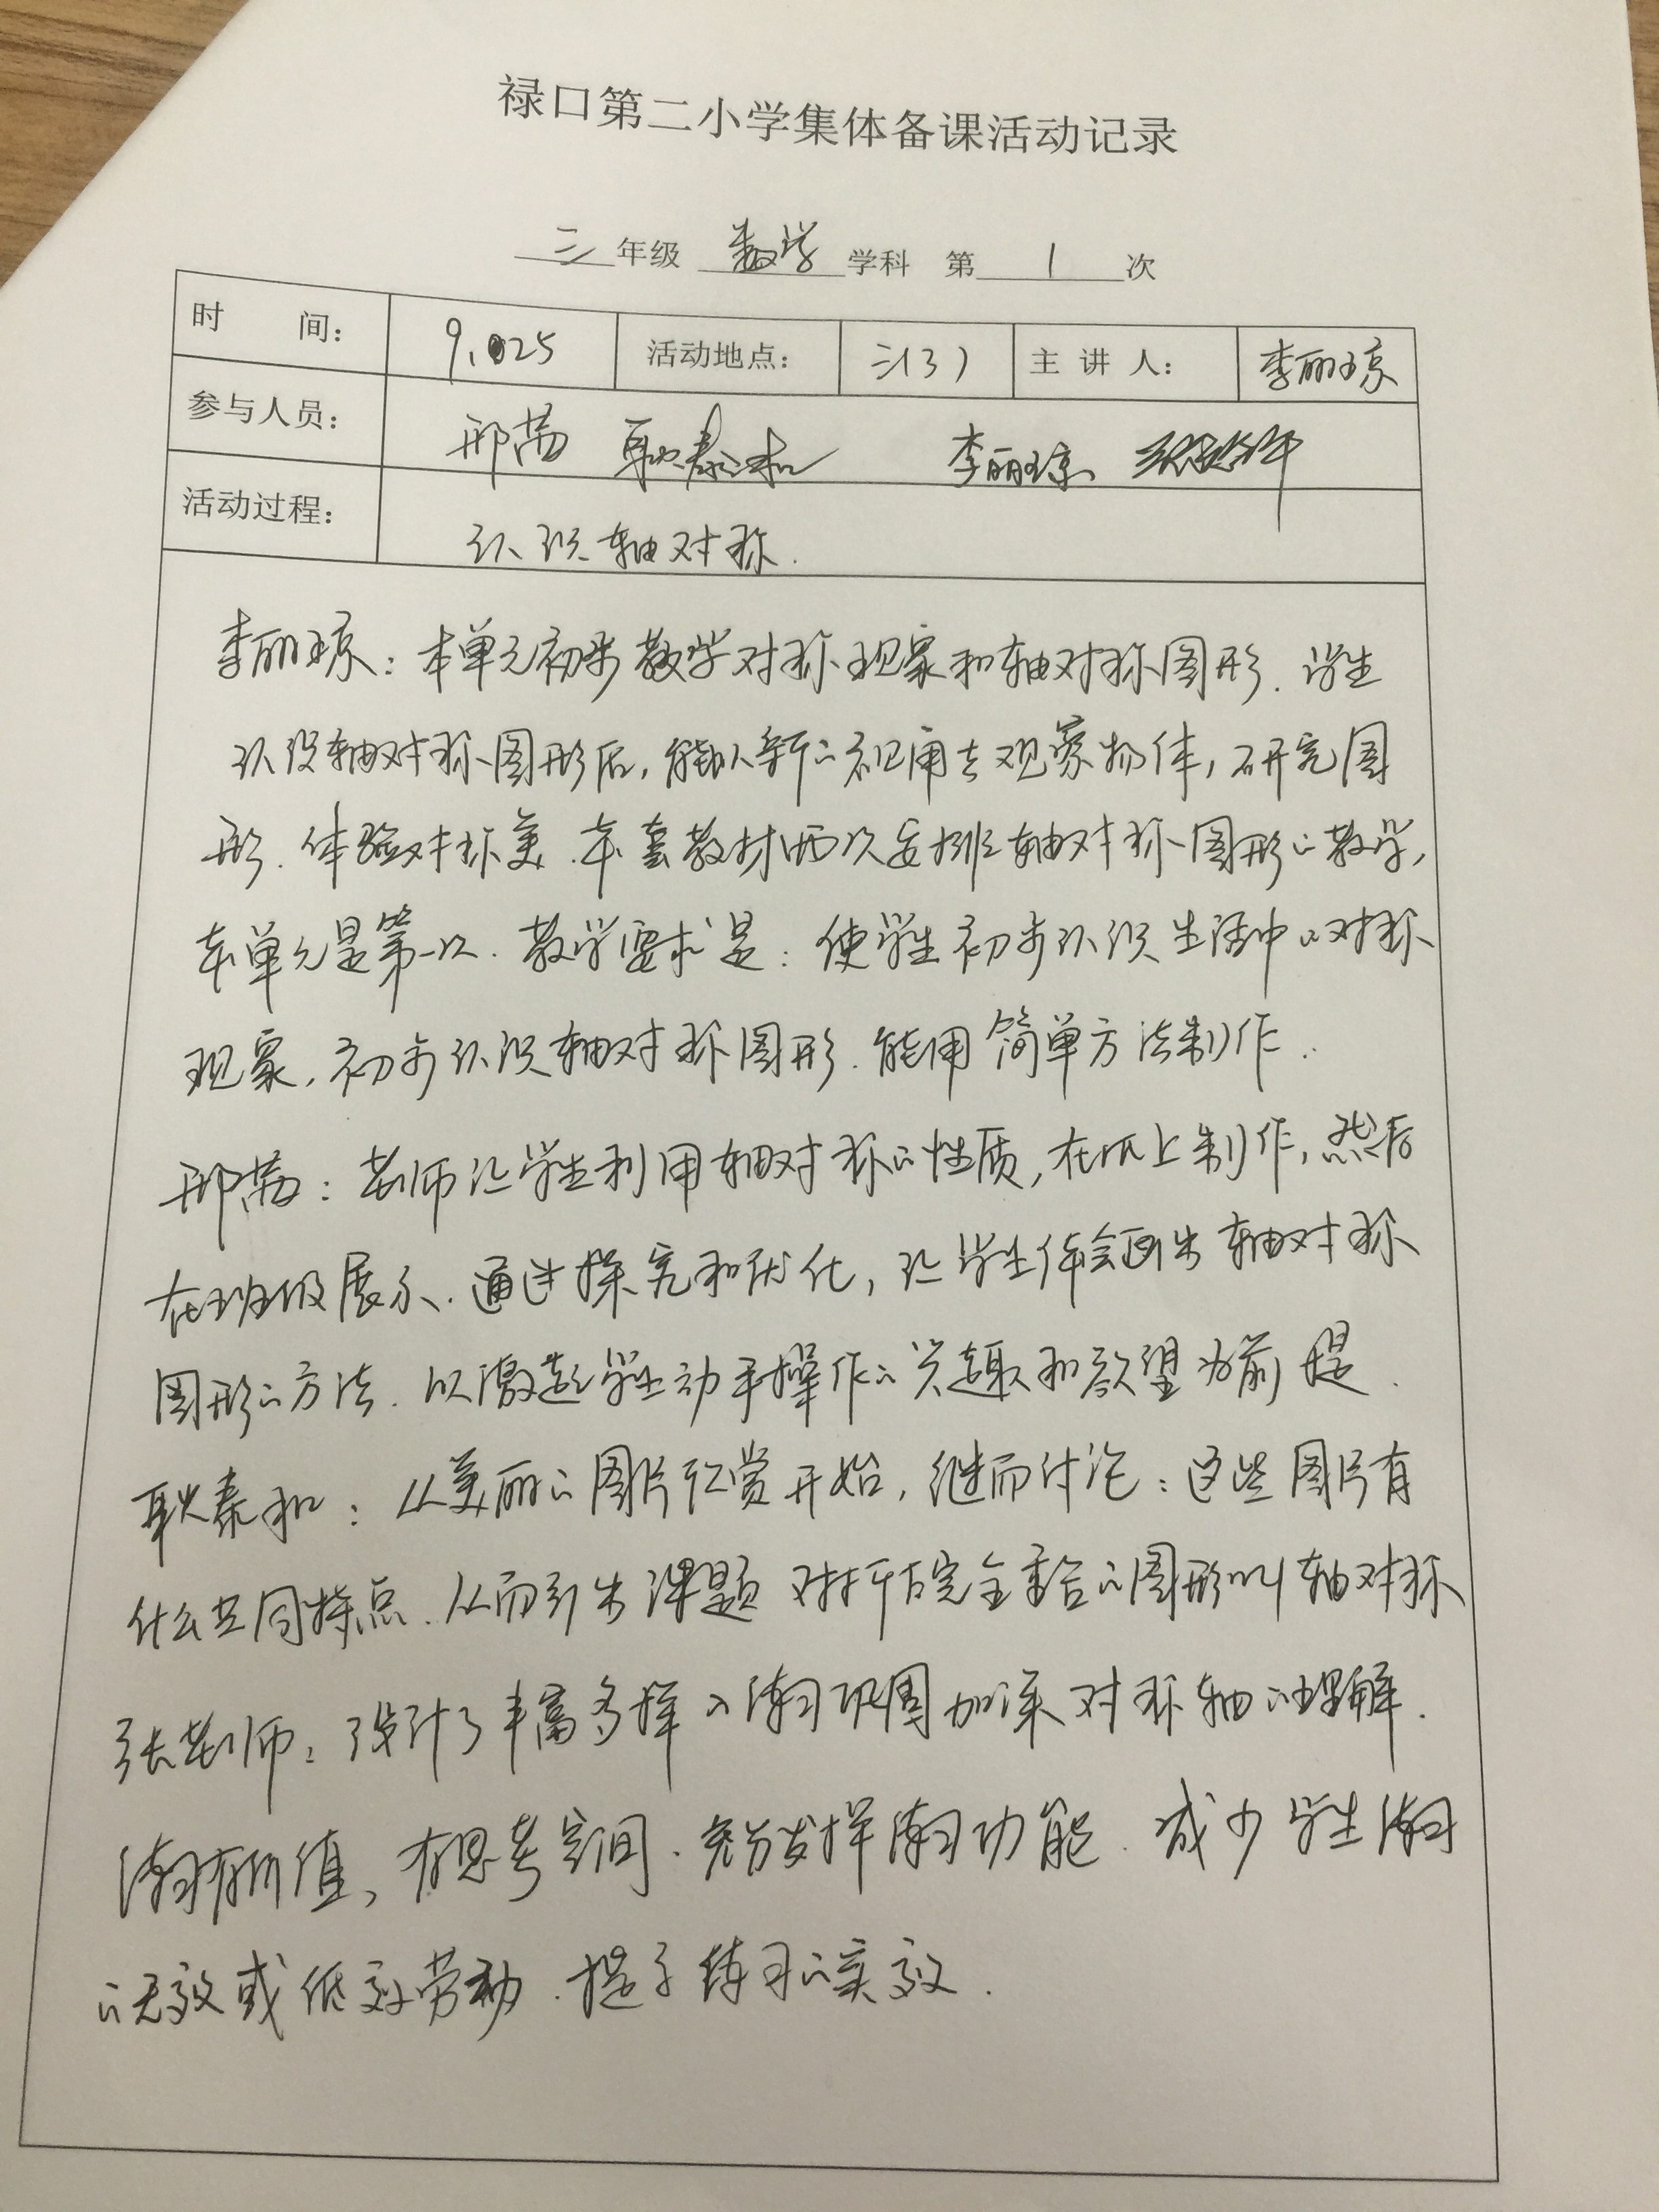 禄口第二小学集体备课活动记录
三 年级 数学 学科 第 1 次
时 间： 9.25 活动地点： 三(3) 主 讲 人： 李丽琼
参与人员： 邢荷 耿泰和 李丽琼
活动过程： 认识轴对称.
李丽琼：本单元初步教学对称现象和轴对称图形.学生
认识轴对称图形后,能以新的视角去观察物体,研究图
形.体验对称美.本套教材两次安排轴对称图形的教学,
本单元是第一次.教学要求是：使学生初步认识生活中的对称
现象,初步认识轴对称图形.能用简单方法制作.
邢荷：老师让学生利用轴对称的性质,在纸上制作,然后
在班级展示.通过探究和优化,让学生体会画出轴对称
图形的方法.以激起学生动手操作的兴趣和欲望为前提.
耿泰和：从美丽的图片欣赏开始,继而讨论：这些图片有
什么共同特点.从而引出课题 对折后完全重合的图形叫轴对称
张老师：设计了丰富多样的练习巩固加深对称轴的理解.
练习有价值、有思考空间.充分发挥练习功能.减少学生练习
的无效或低效劳动.提高练习的实效.